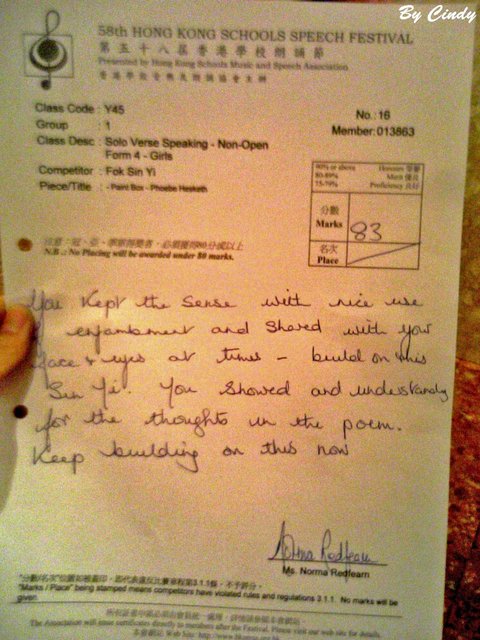 By Cindy
58th HONG KONG SCHOOLS SPEECH FESTIVAL
第五十八屆香港學校朗誦節
Presented by Hong Kong Schools Music and Speech Association
香港學校音樂及朗誦協會主辦
Class Code : Y45
No.: 16
Group : 1
Member: 013863
Class Desc : Solo Verse Speaking - Non-Open
Form 4 - Girls
Competitor : Fok Sin Yi
Piece/Title : - Paint Box - Phoebe Hesketh
90% or above Honours 榮譽
80-89% Merit 優良
75-79% Proficiency 良好
分數
Marks 83
名次
Place
注意：冠、亞、季軍得獎者，必須獲得80分或以上
N.B.: No Placing will be awarded under 80 marks.
You kept the sense with nice use
enjambement and shared with your
face & eyes at times - build on this
Sin Yi. You showed and understandy
for the thoughts in the poem.
Keep building on this now
Norma Redfearn
Ms. Norma Redfearn
"分數/名次"位置如被蓋印，即代表違反比賽章程第3.1.1條，不予評分。
"Marks / Place" being stamped means competitors have violated rules and regulations 3.1.1. No marks will be
given.
The Association will issue certificates directly to members after the Festival. Please visit our web site for details.
本會網站 Web Site: http://www.hksmsa.org.hk